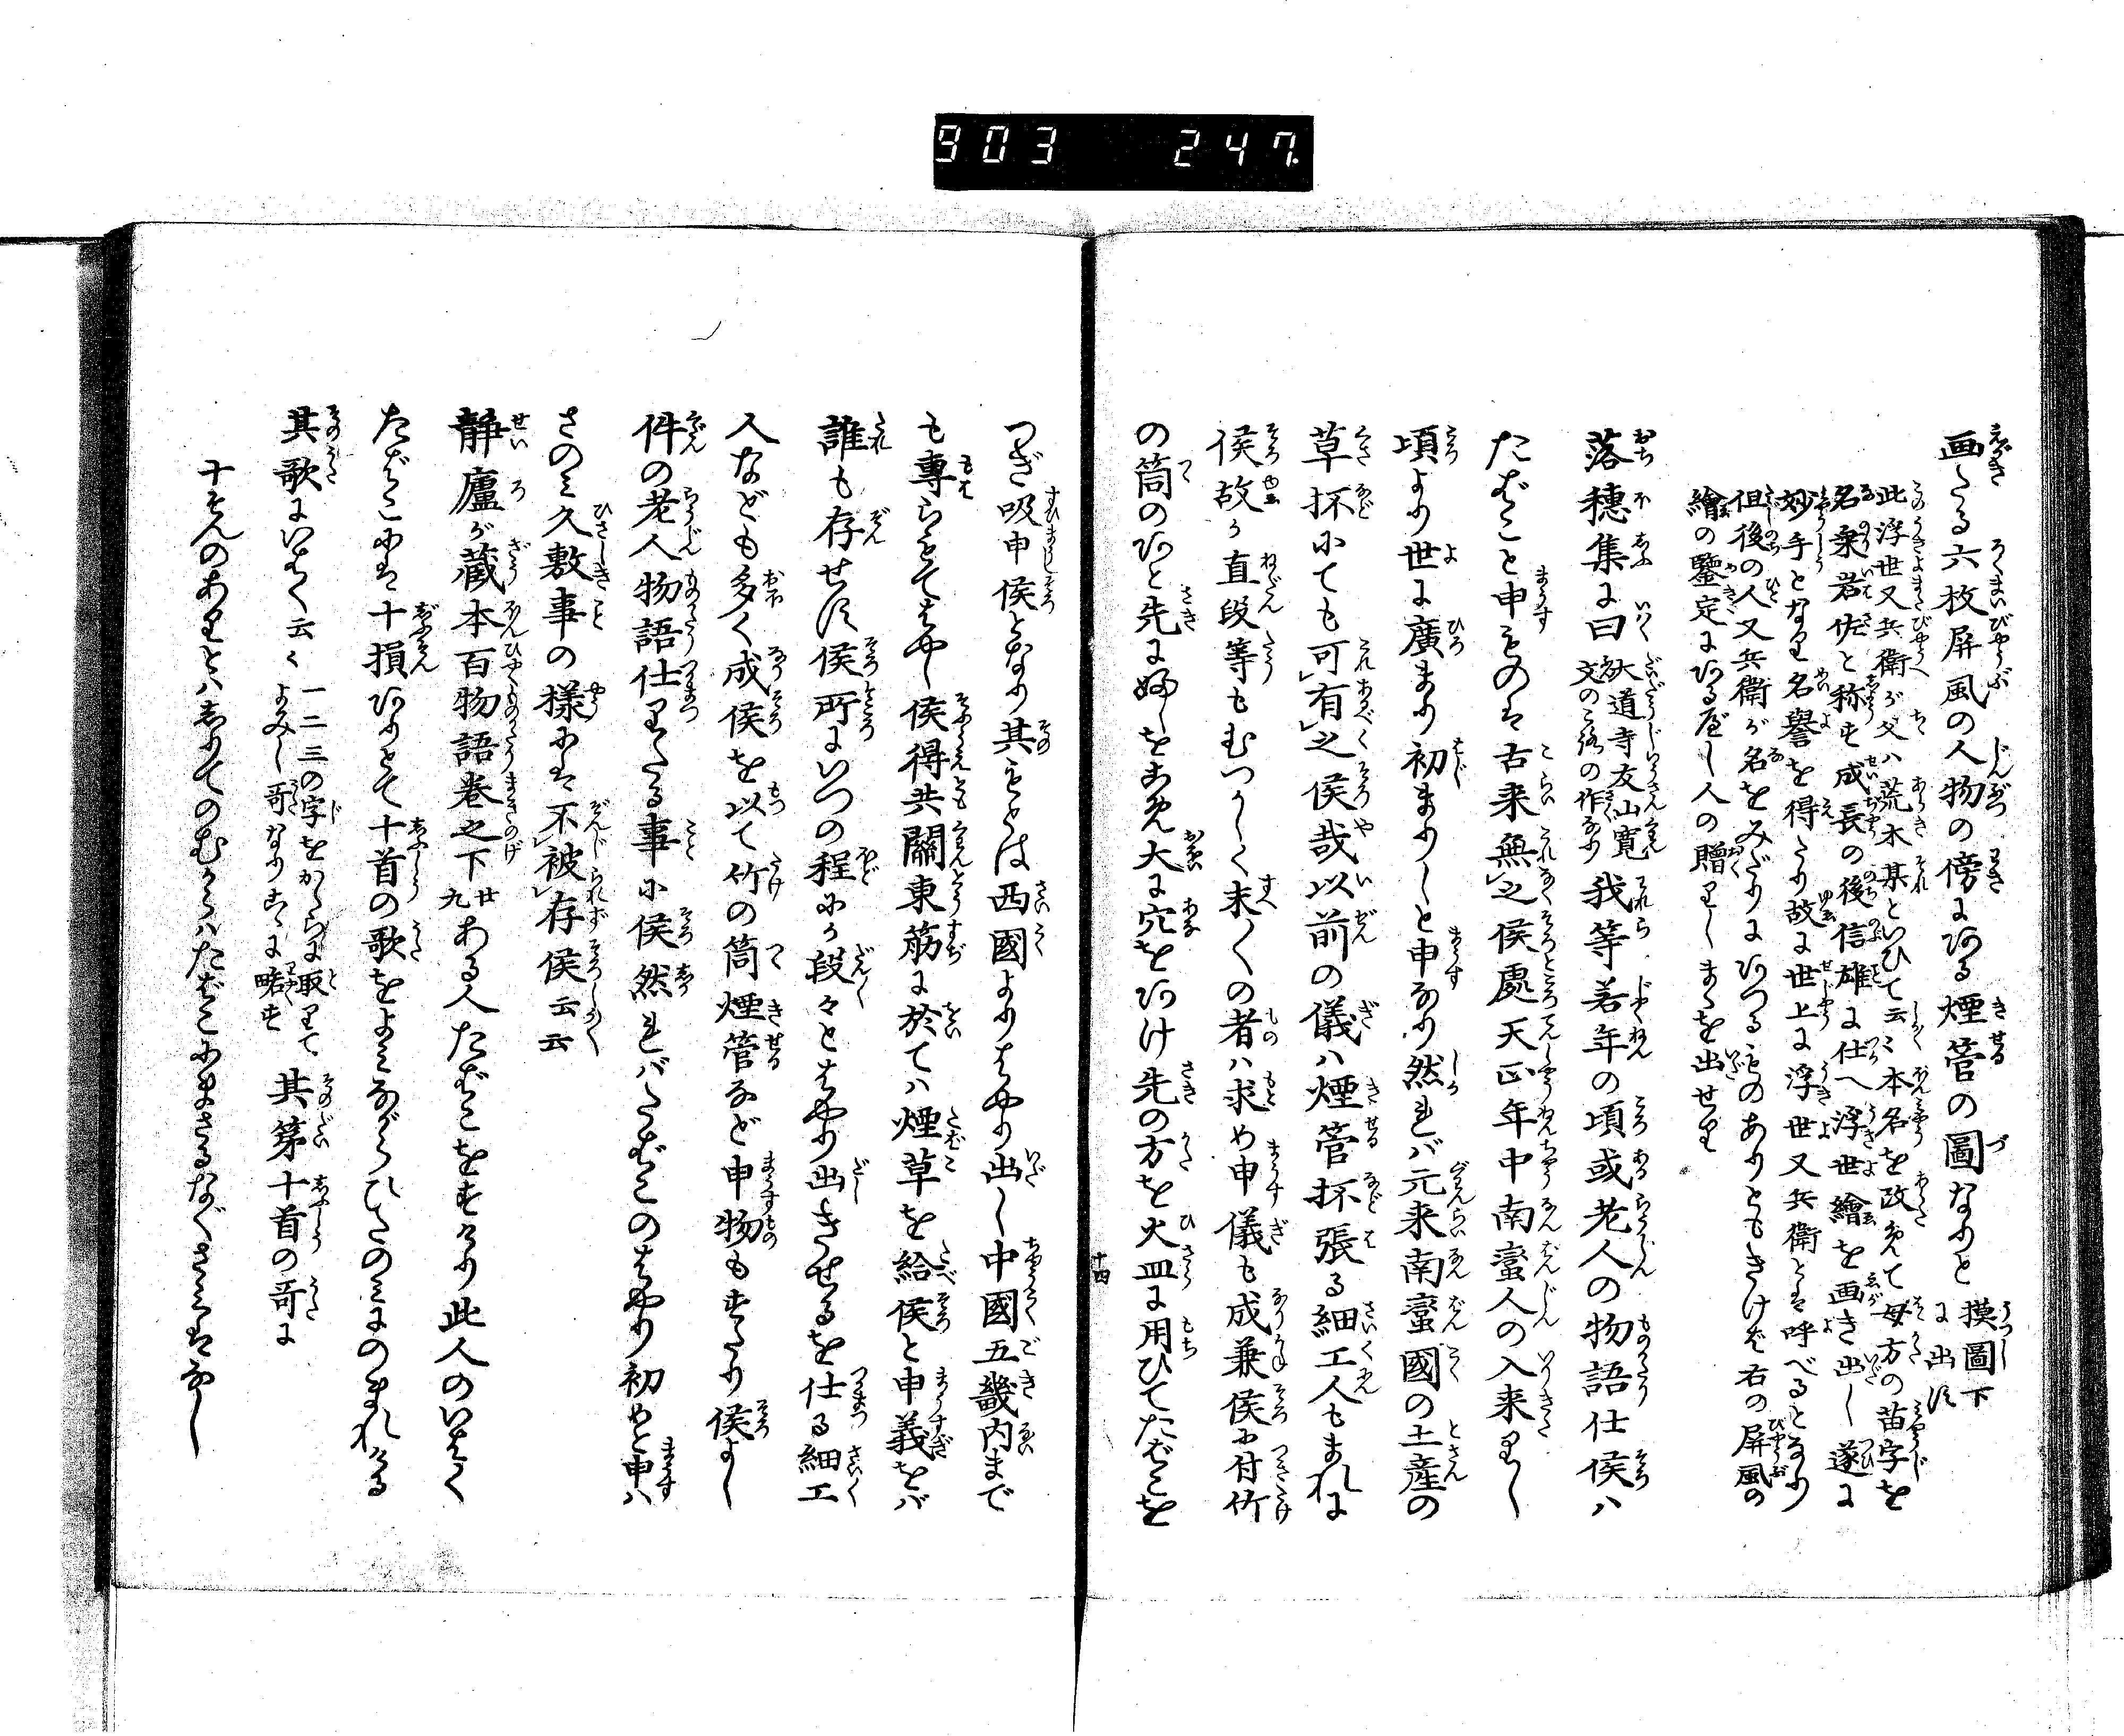 903 247
画たる六枚屏風の人物の傍にある煙管の圖なりと 摸圖下に出す
此浮世又兵衛が父ハ荒木某といひて云々本名を改めて母方の苗字を
名乗岩佐と称す成長の後信雄に仕へ浮世繪を画き出し遂に
妙手となり名譽を得たり故に世上に浮世又兵衛とは呼べるとなり
但後の人又兵衛が名をみだりにかつるものありともきけど右の屏風の
繪の鑒定にある座し人の贈りしまゝを出せり
落穂集に曰 大道寺友山寛文のころの作なり 我等若年の頃或老人の物語仕候ハ
たばこと申ものは古来無之候處天正年中南蠻人の入来りし
頃より世に廣まり初まりしと申なり然れバ元来南蠻國の土産の
草抔にても可有之候哉以前の儀ハ煙管抔張る細工人もまれに
候故か直段等もむつかしく末々の者ハ求め申儀も成兼候に付竹
の筒のあと先に婦しをこめ大に穴をあけ先の方を火皿に用ひてたばこを
十四
つぎ吸申候となり其もとは西國よりはやり出し中國五畿内まで
も専らもてはやし候得共關東筋に於てハ煙草を給候と申義をバ
誰も存せず候所にいつの程にか段々とはやり出きせるを仕る細工
人なども多く成候を以て竹の筒煙管など申物もすたり候よし
件の老人物語仕りたる事に候然れバたばこのはやり初めと申ハ
さのミ久敷事の様には不被存候云云
静廬が蔵本百物語巻之下廿九ある人たばこをすけり此人のいはく
たばこには十損ありとて十首の歌をよミながらひたのミにのまれける
其歌にいはく云々 一二三の字をかしらに取りてよみし哥なりこゝに略す 其第十首の哥に
十そんのありとハしりてのむからハたばこにまさるなぐさミはなし